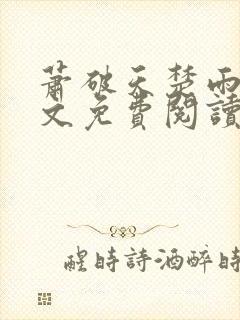 蕭破天楚雨
文免費閱讀
醒時詩酒醉時